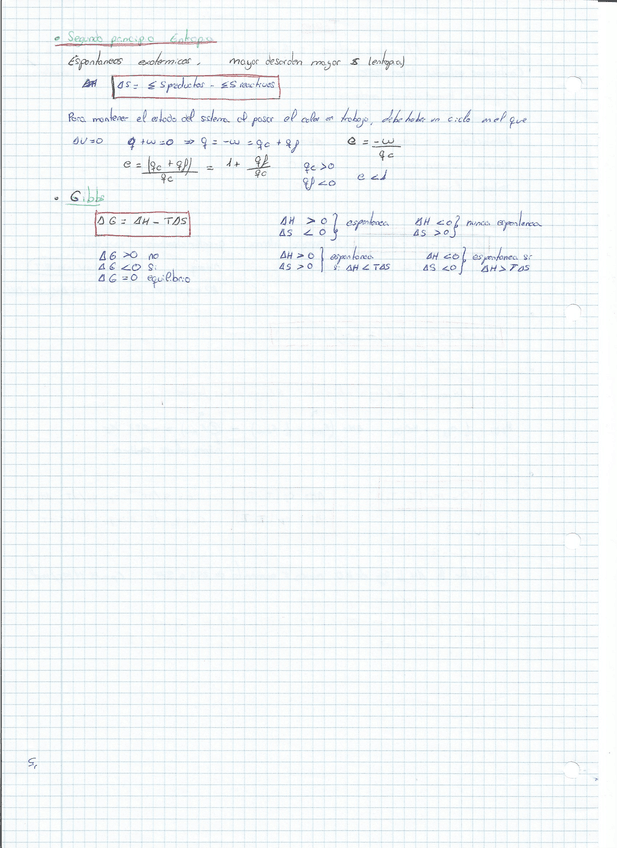 • Segundo principio Entropia
Espontaneos exotermicos, mayor desorden mayor S (entropia)
ΔH ΔS = ≤ S productos - ≤ S reactivos
Para mantener el estado del sistema al pasar el calor a trabajo, debe haber un ciclo en el que
ΔU=0 q+w=0 ⇒ q = -w = qc + qf e = -w/qc
e = (qc + qf)/qc = 1 + qf/qc qc>0 qf<0 e<1
• Gibbs
ΔG = ΔH - TΔS
ΔH > 0 ΔS < 0 } espontanea ΔH < 0 ΔS > 0 } nunca espontanea
ΔG >0 no
ΔG <0 si
ΔG =0 equilibrio
ΔH > 0 ΔS > 0 } espontanea si ΔH < TΔS ΔH <0 ΔS <0 } espontanea si ΔH > TΔS